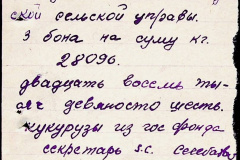 ской сельской управы.
3 бона на сумму кг.
28096.
двадцать восемь ты-
сяч девяносто шесть.
кукурузы из гос фонда
секретарь s.c.